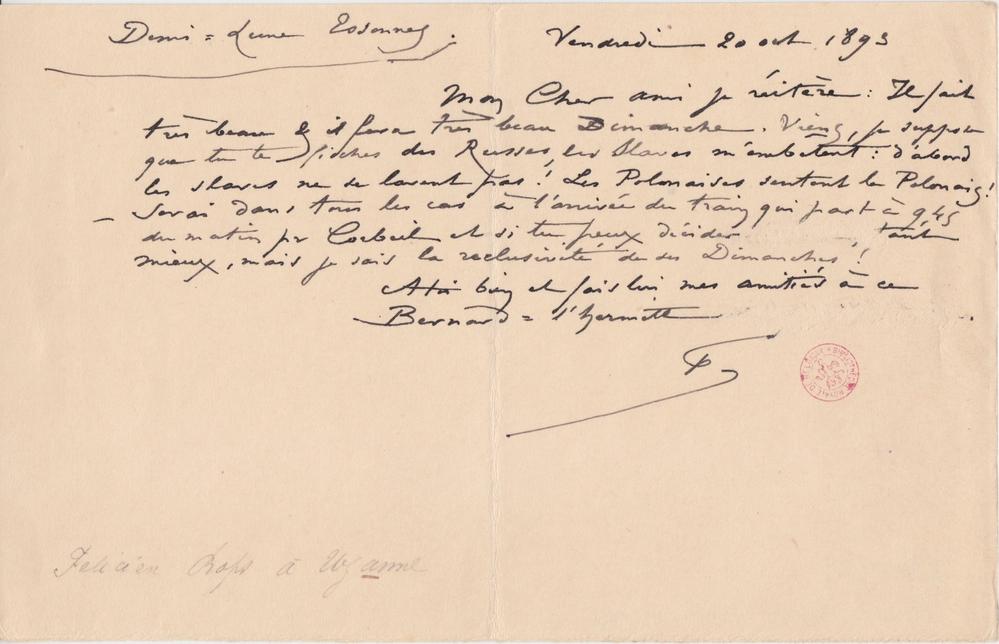 Demi=Lune Essonnes.
Vendredi 20 oct 1893
Mon Cher ami je réitère : Il fait
très beau & il fera très beau Dimanche. Viens, je suppose
que tu te fiches des Russes, les Slaves m'embêtent : d'abord
les slaves ne se lavent pas ! Les Polonaises sentent le Polonais !
– Serai dans tous les cas à l'arrivée du train qui part à 9,45
du matin pr Corbeil et si tu peux décider tant
mieux, mais je sais la reclusivité de ses Dimanches !
A toi bien et fais lui mes amitiés à ce
Bernard=l'hermitte
Félicien Rops à Uzanne